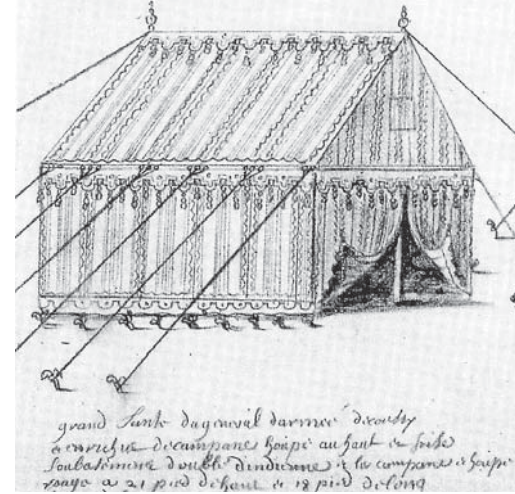 grand Tante dageneral darmeé decoutty
enrichie decampane houpe au haut et
Soubasement double dindienne et les campane e houpe
rouge a 21 pied dehaut e 18 pied delong